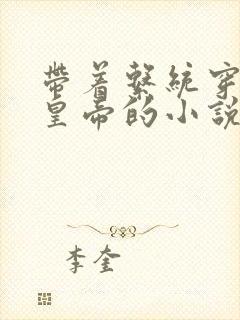 帶着繫統穿
皇帝的小說
李奎